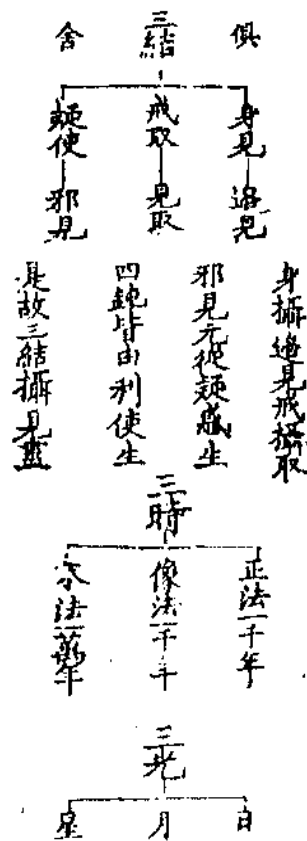 俱
三結
舍
身見 邊見
戒取 見取
疑使 邪見
身攝邊見戒攝取
邪見元從疑惑生
四鈍皆由利使生
是故三結攝見盡
三時
正法一千年
像法一千年
末法一萬年
三光
日
月
星